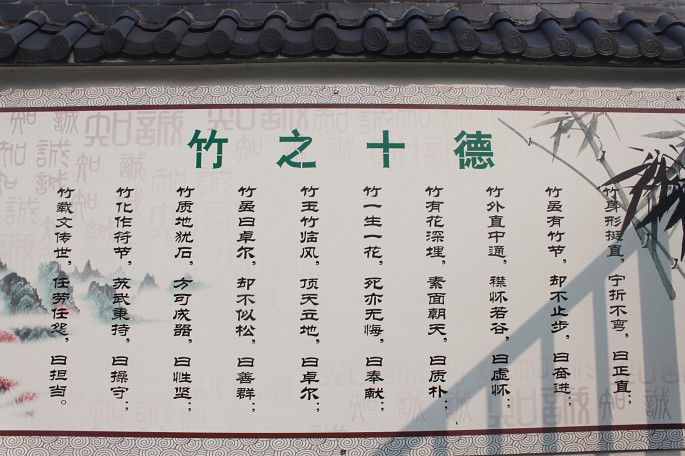 竹之十德
竹身形挺直，宁折不弯，曰正直；
竹虽有竹节，却不止步，曰奋进；
竹外直中通，襟怀若谷，曰虚怀；
竹有花深埋，素面朝天，曰质朴；
竹一生一花，死亦无悔，曰奉献；
竹玉竹临风，顶天立地，曰卓尔；
竹虽曰卓尔，却不似松，曰善群；
竹质地犹石，方可成器，曰性坚；
竹化作符节，苏武秉持，曰操守；
竹载文传世，任劳任怨，曰担当。